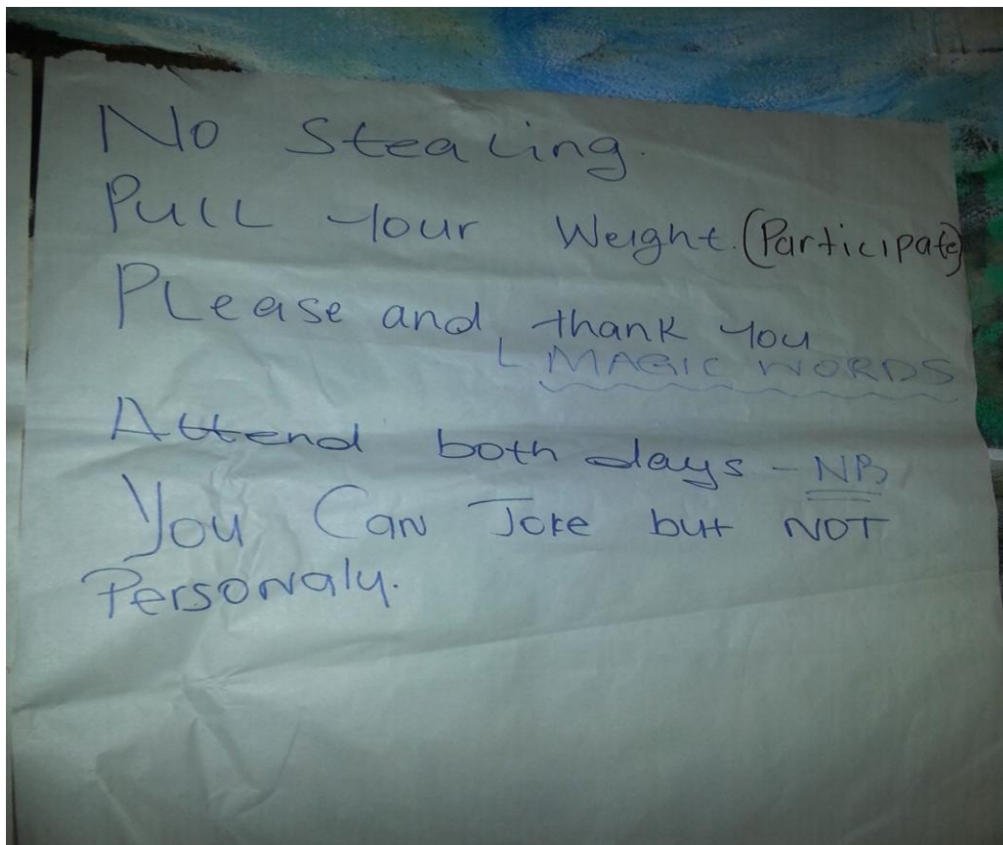 No Stealing.
Pull Your Weight. (Participate)
Please and thank You
MAGIC WORDS
Attend both days - NB
You Can Joke but NOT
Personaly.